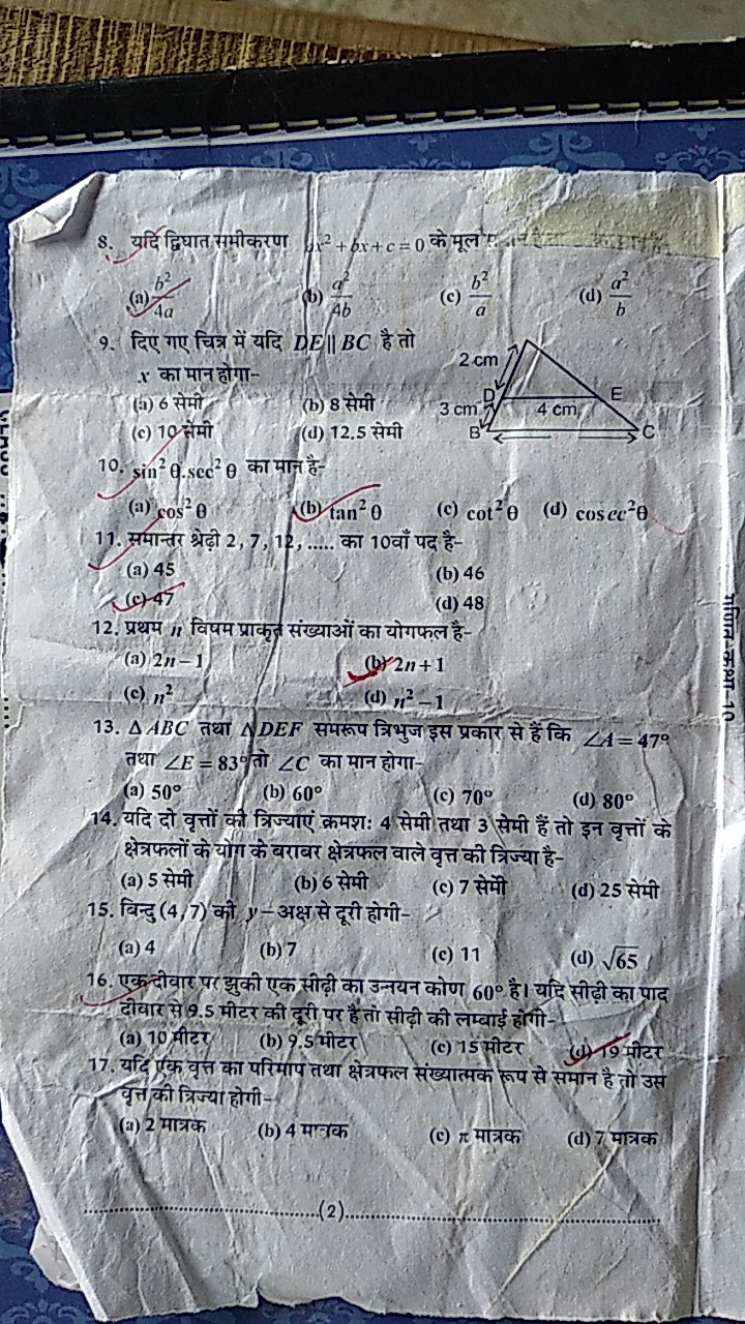 8. यदि द्विघात समीकरण ax² + bx + c = 0 के मूल
(a) b²/4a (b) a²/4b (c) b²/a (d) a²/b
9. दिए गए चित्र में यदि DE || BC है तो
x का मान होगा-
(a) 6 सेमी (b) 8 सेमी
(c) 10 सेमी (d) 12.5 सेमी
2 cm
D E
3 cm 4 cm
B C
10. sin² θ.sec² θ का मान है-
(a) cos² θ (b) tan² θ (c) cot² θ (d) cosec²θ
11. समान्तर श्रेढ़ी 2, 7, 12, ..... का 10वाँ पद है-
(a) 45 (b) 46
(c) 47 (d) 48
12. प्रथम n विषम प्राकृत संख्याओं का योगफल है-
(a) 2n − 1 (b) 2n + 1
(c) n² (d) n² − 1
13. Δ ABC तथा Δ DEF समरूप त्रिभुज इस प्रकार से हैं कि ∠A = 47°
तथा ∠E = 83° तो ∠C का मान होगा-
(a) 50° (b) 60° (c) 70° (d) 80°
14. यदि दो वृत्तों की त्रिज्याएं क्रमशः 4 सेमी तथा 3 सेमी हैं तो इन वृत्तों के
क्षेत्रफलों के योग के बराबर क्षेत्रफल वाले वृत्त की त्रिज्या है-
(a) 5 सेमी (b) 6 सेमी (c) 7 सेमी (d) 25 सेमी
15. बिन्दु (4, 7) की y − अक्ष से दूरी होगी-
(a) 4 (b) 7 (c) 11 (d) √65
16. एक दीवार पर झुकी एक सीढ़ी का उन्नयन कोण 60° है। यदि सीढ़ी का पाद
दीवार से 9.5 मीटर की दूरी पर है तो सीढ़ी की लम्बाई होगी-
(a) 10 मीटर (b) 9.5 मीटर (c) 15 मीटर (d) 19 मीटर
17. यदि एक वृत्त का परिमाप तथा क्षेत्रफल संख्यात्मक रूप से समान है तो उस
वृत्त की त्रिज्या होगी-
(a) 2 मात्रक (b) 4 मात्रक (c) π मात्रक (d) 7 मात्रक
(2)
गणित-कक्षा-10